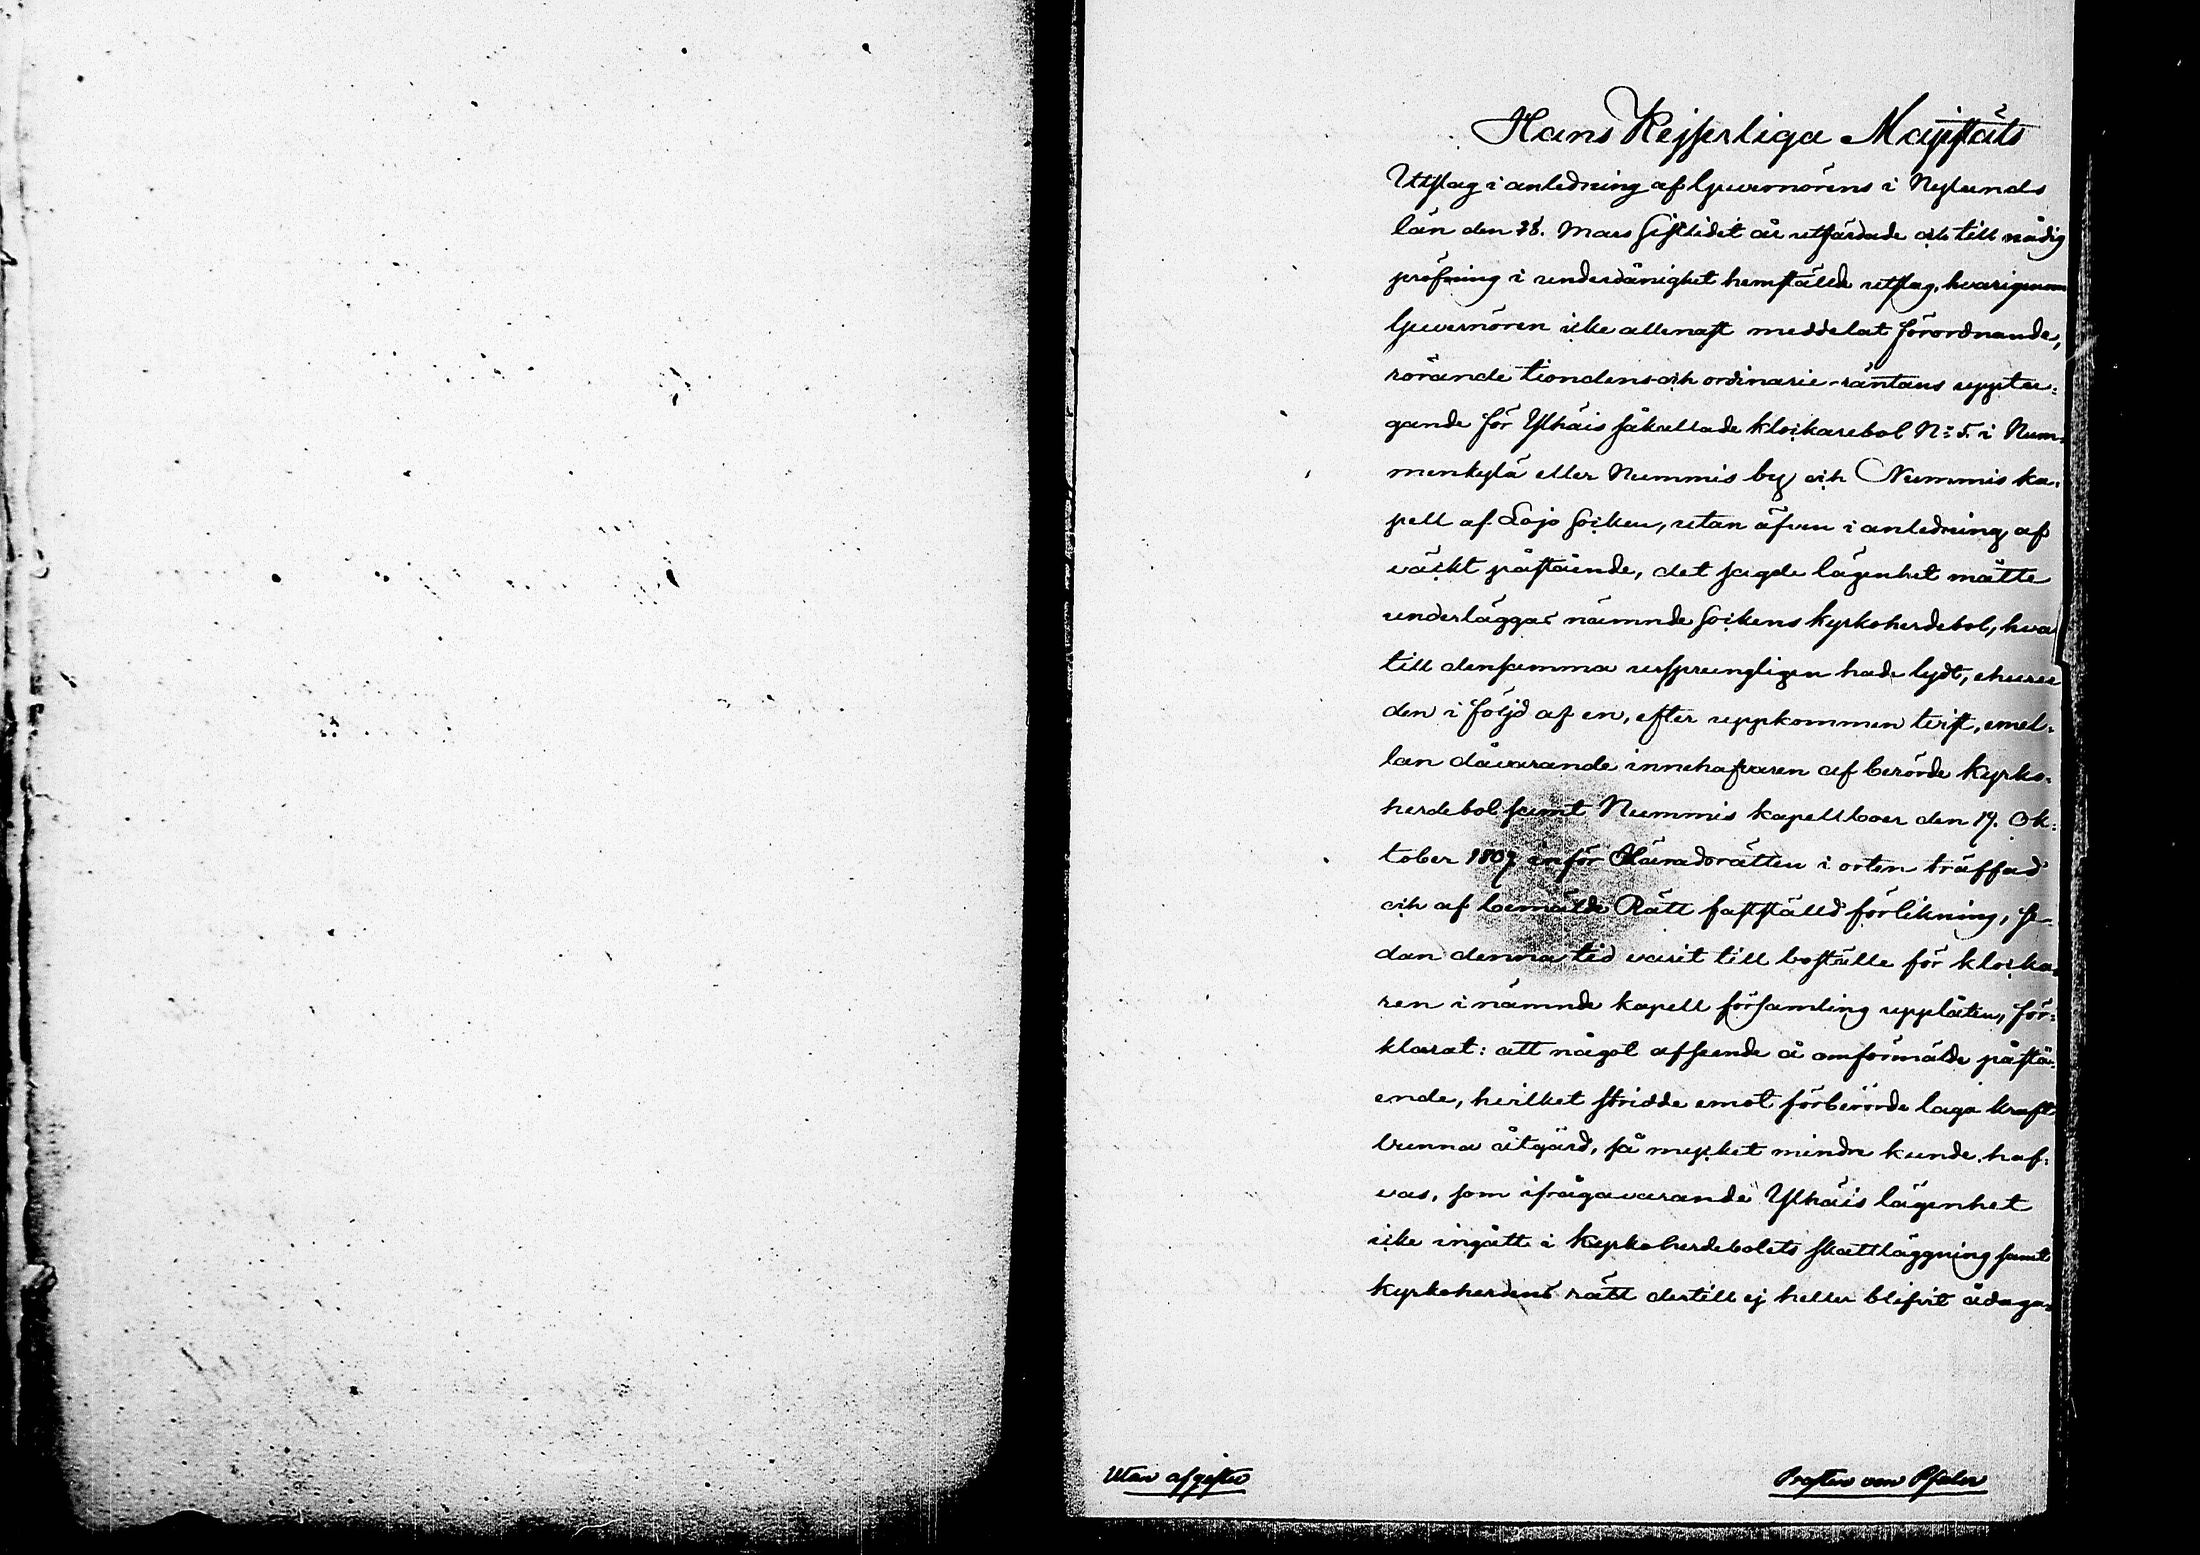 Hans Kejserliga Majestäts
Utslag i anledning af Guvernörens i Nylands
län den 28. Mars sistlidet år utfärdade och till nådig
pröfning i underdånighet hemställde utslag, hvarigenom
Guvernören icke allenast meddelat förordnande,
rörande tiondens och ordinarie-räntans uppta-
gande för Ylhäis såkallade klockarebol No 5. i Num-
menkylä eller Nummis by och Nummis ka-
pell af Lojo socken, utan äfven i anledning af
väckt påstående, det sagde lägenhet måtte
underläggas nämnde sockens kyrkoherdebol, hvar
till densamma ursprungligen hade lydt, ehuru
den i följd af en, efter uppkommen tvist, emel-
lan dåvarande innehafvaren af berörde kyrko-
herdebol samt Nummis kapellboer den 19. Ok-
tober 1807 inför Häradsrätten i orten träffad
och af bemälde Rätt fastställd förlikning, se-
dan denna tid varit till boställe för klocka-
ren i nämnde kapell församling upplåten, för-
klarat: att något afseende å omförmälde påstå-
ende, hvilket stridde emot förberörde laga kraft
vunna åtgärd, så mycket mindre kunde haf-
vas, som ifrågavarande Ylhäis lägenhet
icke ingått i kyrkoherdebolets skattläggning samt
kyrkoherdens rätt dertill ej heller blifvit ådaga-
Utan afgifter
Prosten von Pfaler